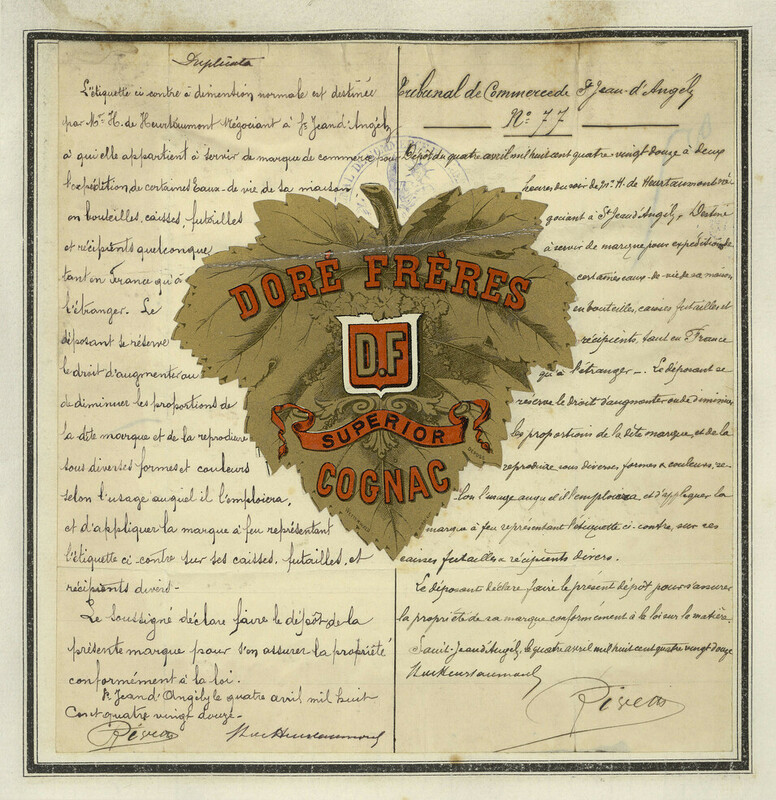 Duplicata
L'étiquette ci contre à dimention normale est destinée
par Mr. H. de Heurtaumont Négociant à St Jean d'Angély
à qui elle appartient à servir de marque de commerce pour
l'expédition de certaines Eaux-de-vie de sa maison
en bouteilles, caisses, futailles
et récipients quelconque
tant en France qu'à
l'étranger. Le
déposant se réserve
le droit d'augmenter ou
de diminuer les proportions de
la dite marque et de la reproduire
sous diverses formes et couleurs
selon l'usage auquel il l'emploiera,
et d'appliquer la marque à feu représentant
l'étiquette ci-contre sur ses caisses, futailles, et
récipients divers-
Le soussigné déclare faire le dépôt de la
présente marque pour s'en assurer la propriété
conformément à la loi.
St Jean d'Angély le quatre avril mil huit
Cent quatre vingt douze-
DORÉ FRÈRES
D.F
SUPERIOR
COGNAC
Tribunal de Commerce de St Jean-d'Angély
No 77
Dépôt du quatre avril mil huit cent quatre-vingt douze à deux
heures du soir de Mr. H. de Heurtaumont né
gociant à St Jean d'Angély. Destiné
à servir de marque pour expédition de
certaines eaux-de-vie de sa maison,
en bouteilles, caisses futailles et
récipients, tant en France
qu'à l'étranger -. Le déposant se
réserve le droit d'augmenter ou de diminuer
les proportions de la dite marque, et de la
reproduire sous diverses formes & couleurs, se-
lon l'usage auquel il l'emploiera et d'appliquer la
marque à feu représentant l'étiquette ci-contre, sur ses
caisses futailles & récipients divers.
Le déposant déclare faire le présent dépôt pour s'assurer
la propriété de sa marque conformément à la loi sur la matière.
Saint-Jean d'Angély, le quatre avril mil huit cent quatre vingt douze